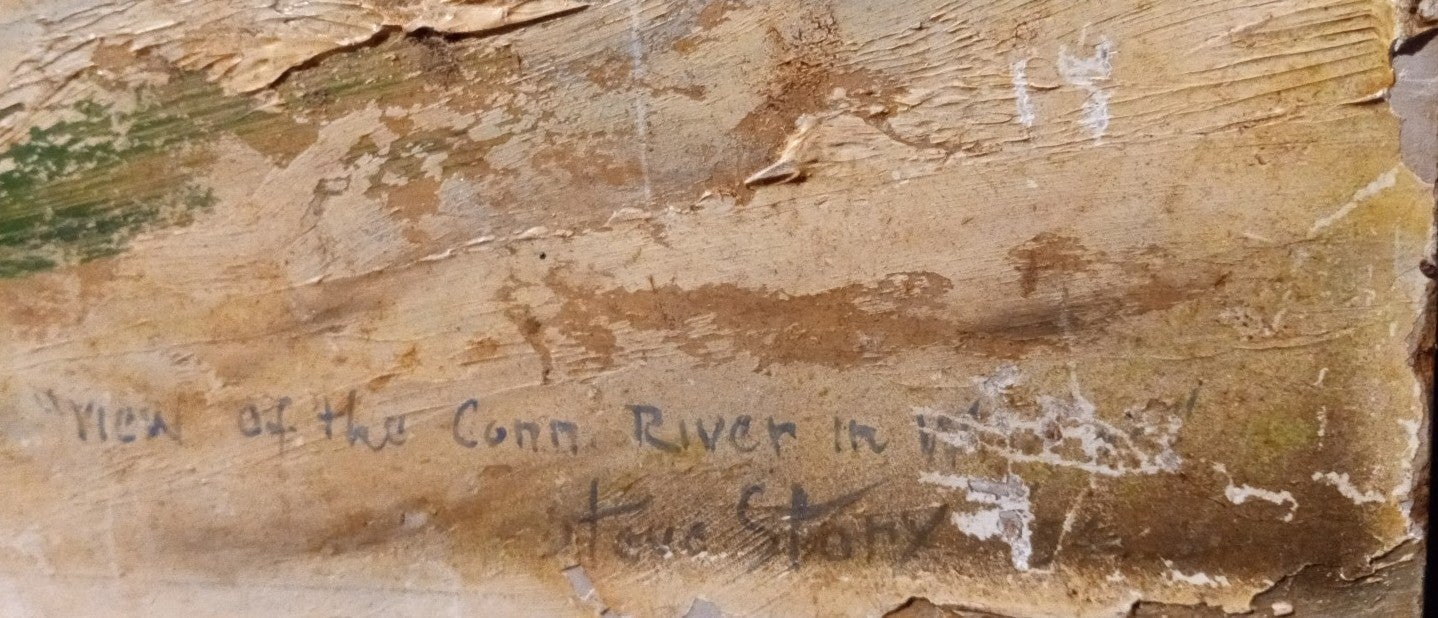 "View of the Conn. River in
Steve Story